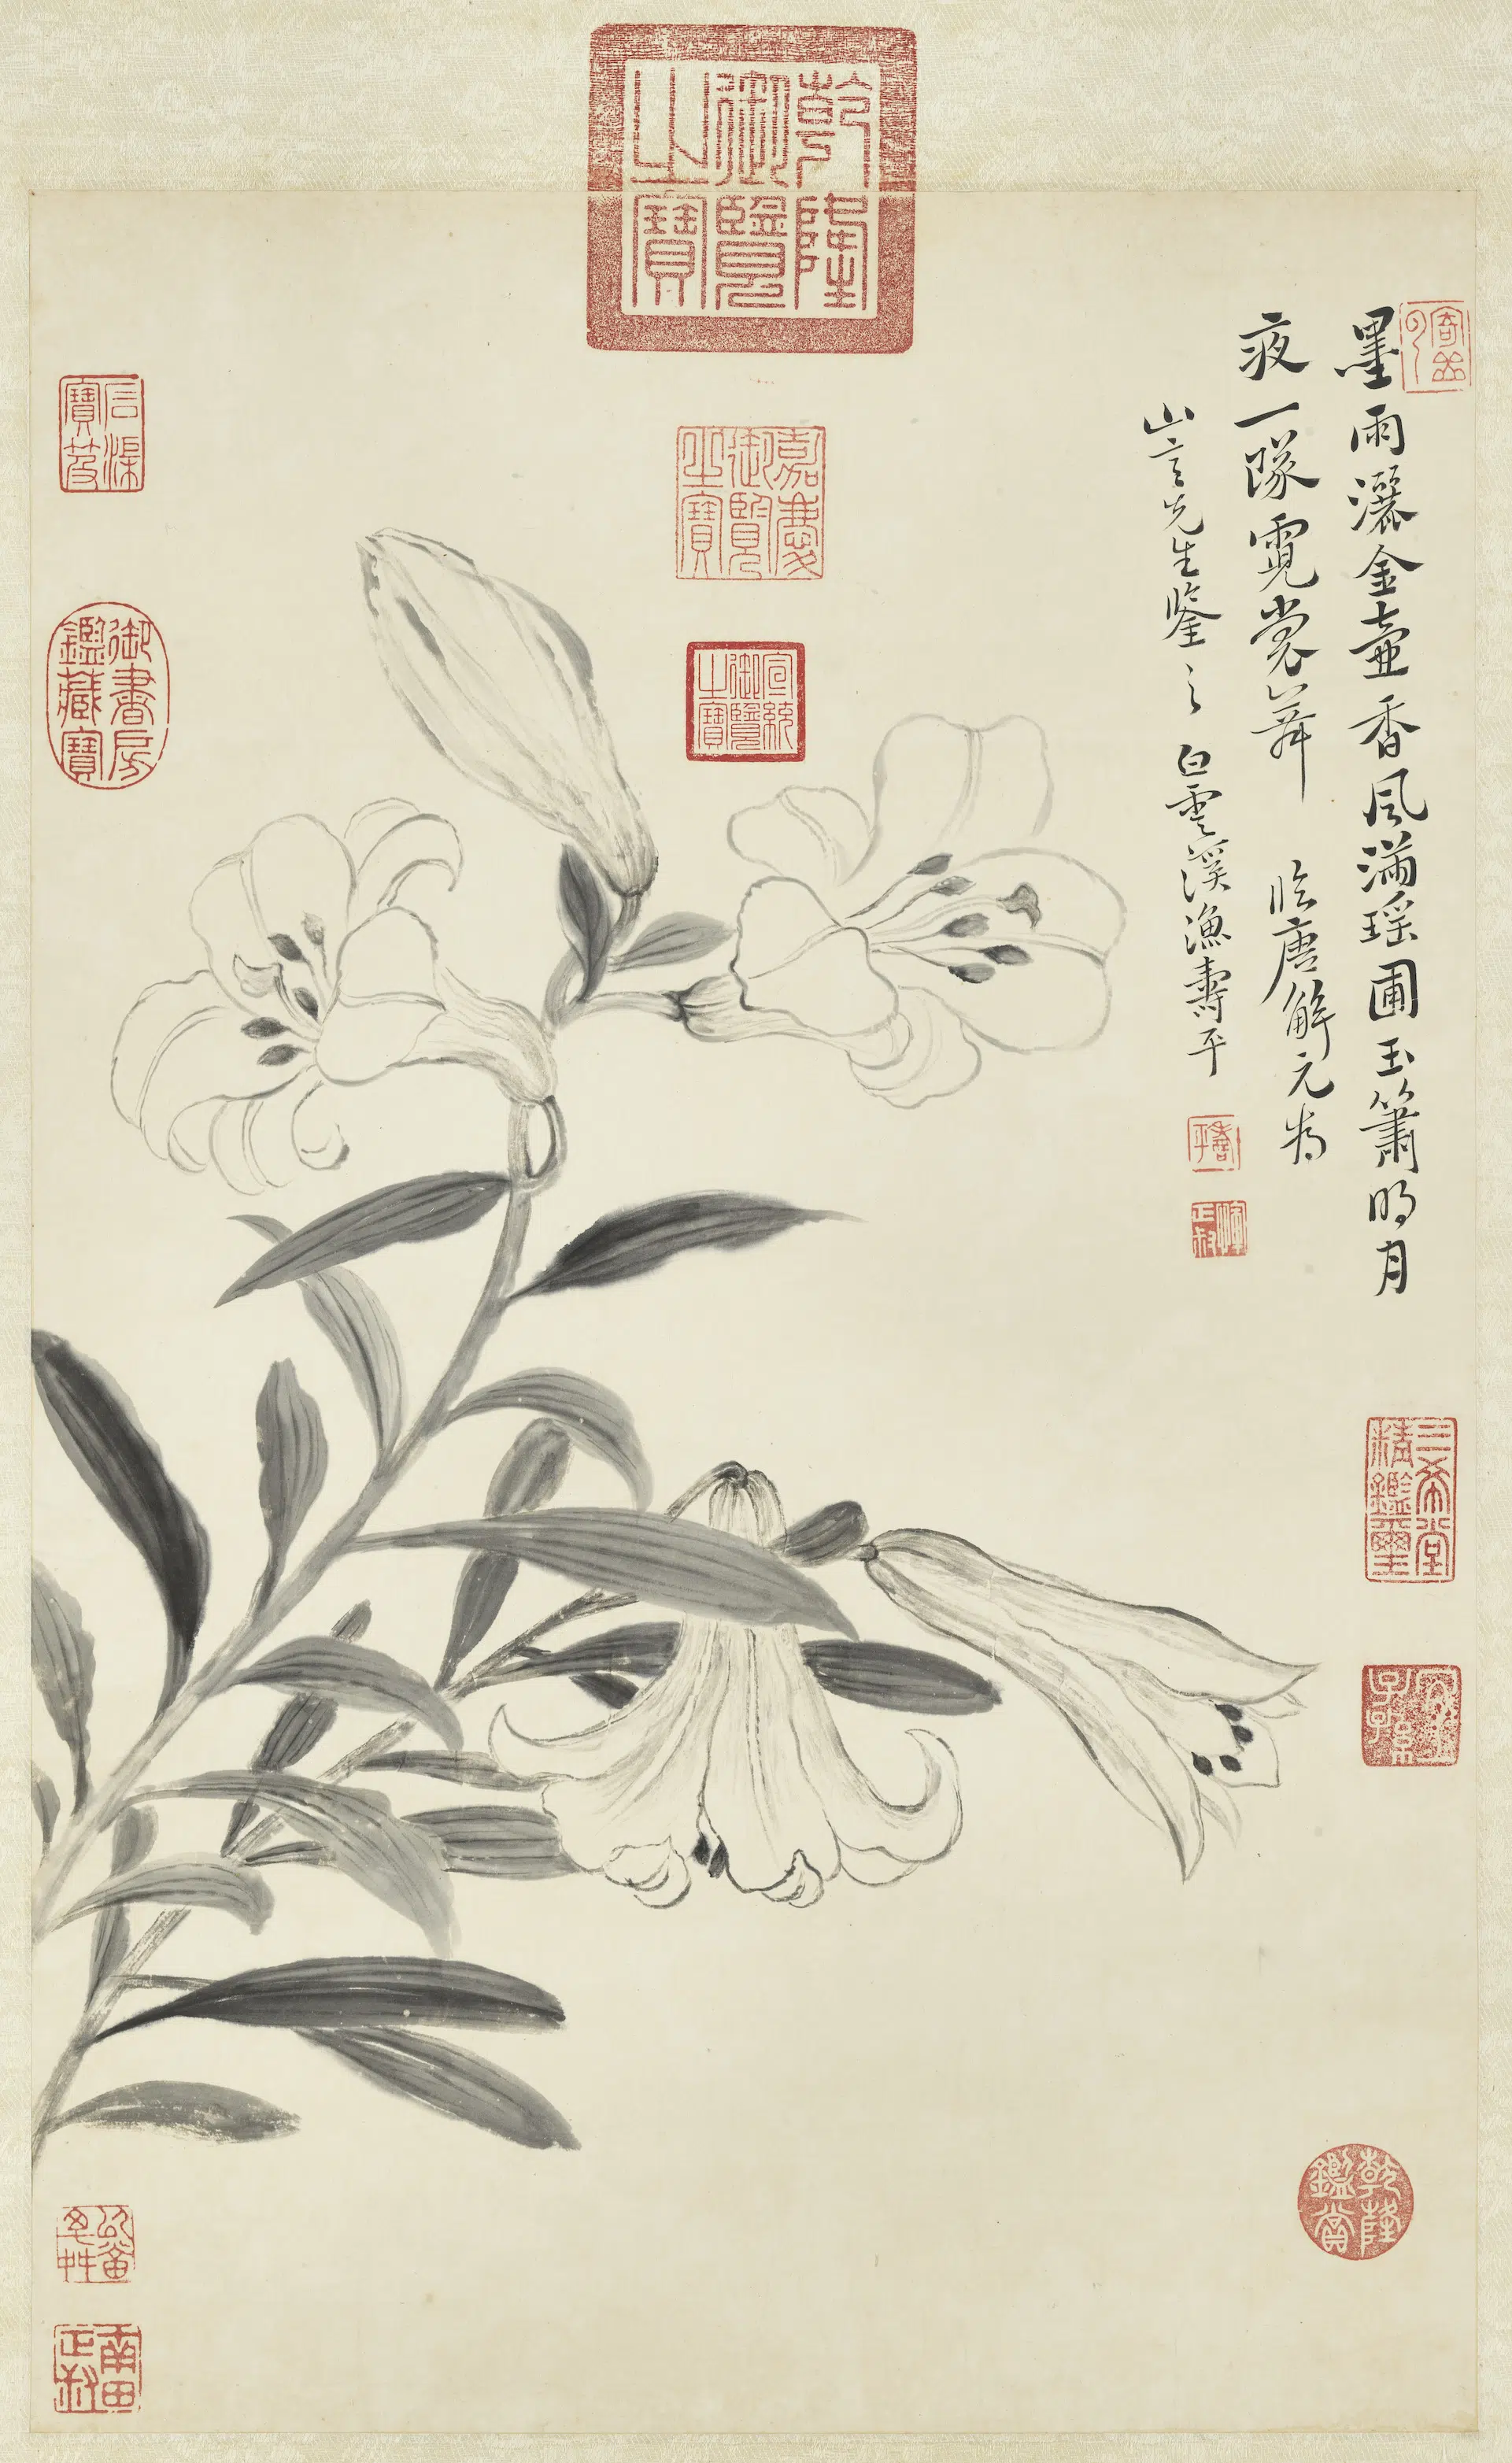 乾隆御覽之寶
墨雨灑金壷香風滿瑶圃玉簫明月
夜一隊霓裳舞 臨唐解元為
山言先生鑒之 白雲溪漁壽平
壽平
惲正叔
嘉慶御覽之寶
宣統御覽之寶
石渠寶笈
御書房鑑藏寶
三希堂精鑑璽
宜子孫
乾隆鑑賞
南田正叔